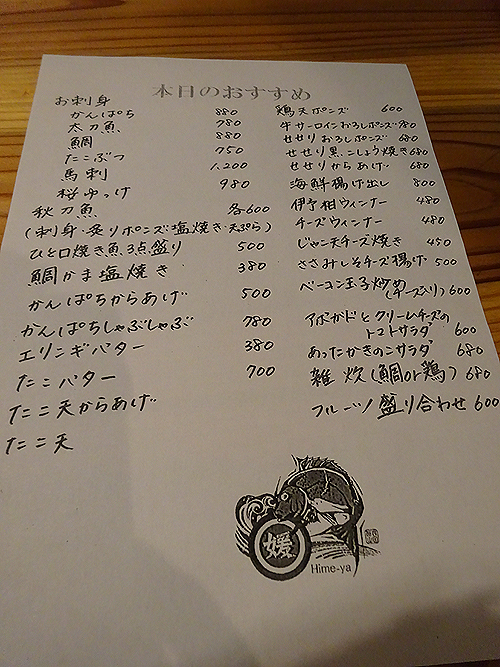 本日のおすすめ
お刺身
かんぱち 880
太刀魚 780
鯛 880
たこぶつ 750
馬刺 1,200
桜ゆっけ 980
秋刀魚 各600
(刺身・炙りポンズ・塩焼き・天ぷら)
ひと口焼き魚3点盛り 500
鯛かま塩焼き 380
かんぱちからあげ 500
かんぱちしゃぶしゃぶ 780
エリンギバター 380
たこバター 700
たこ天からあげ
たこ天
鶏天ポンズ 600
牛サーロインおろしポンズ 780
せせりおろしポンズ 680
せせり黒こしょう焼き 680
せせりからあげ 680
海鮮揚げ出し 800
伊予柑ウィンナー 480
チーズウィンナー 480
じゃこ天チーズ焼き 450
ささみしそチーズ揚げ 500
ベーコン玉子炒め
(チーズ入り) 600
アボガドとクリームチーズの
トマトサラダ 600
あったかきのこサラダ 680
雑炊(鯛or鶏) 680
フルーツ盛り合わせ 600
媛
Hime-ya